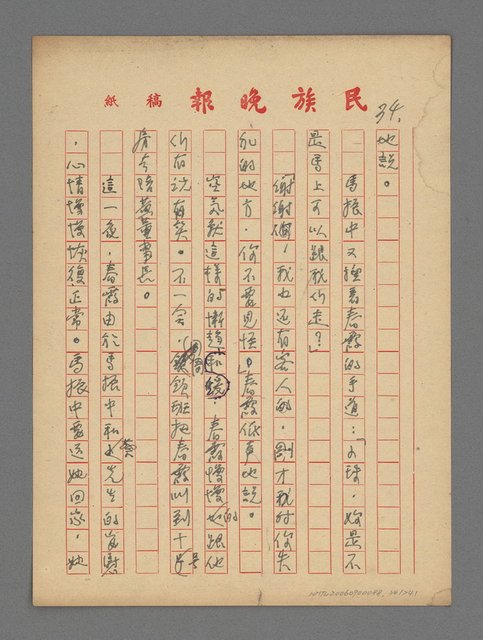 民族晚報稿紙
34.
她說。
馬振中又握着春霞的手道:「小珠,妳是不
是馬上可以跟我們走?」
「謝謝你,我也還有客人的,剛才我對你失
禮的地方,你不要見怪。」春霞低聲地說。
空氣就這樣的漸趨和緩,春霞慢慢的跟他
們有說有笑。不一會,領班把春霞叫到十號
房去陪蔡董事長。
這一夜,春霞由於馬振中和黃先生的安慰
,心情慢慢恢復正常。馬振中要送她回家,她